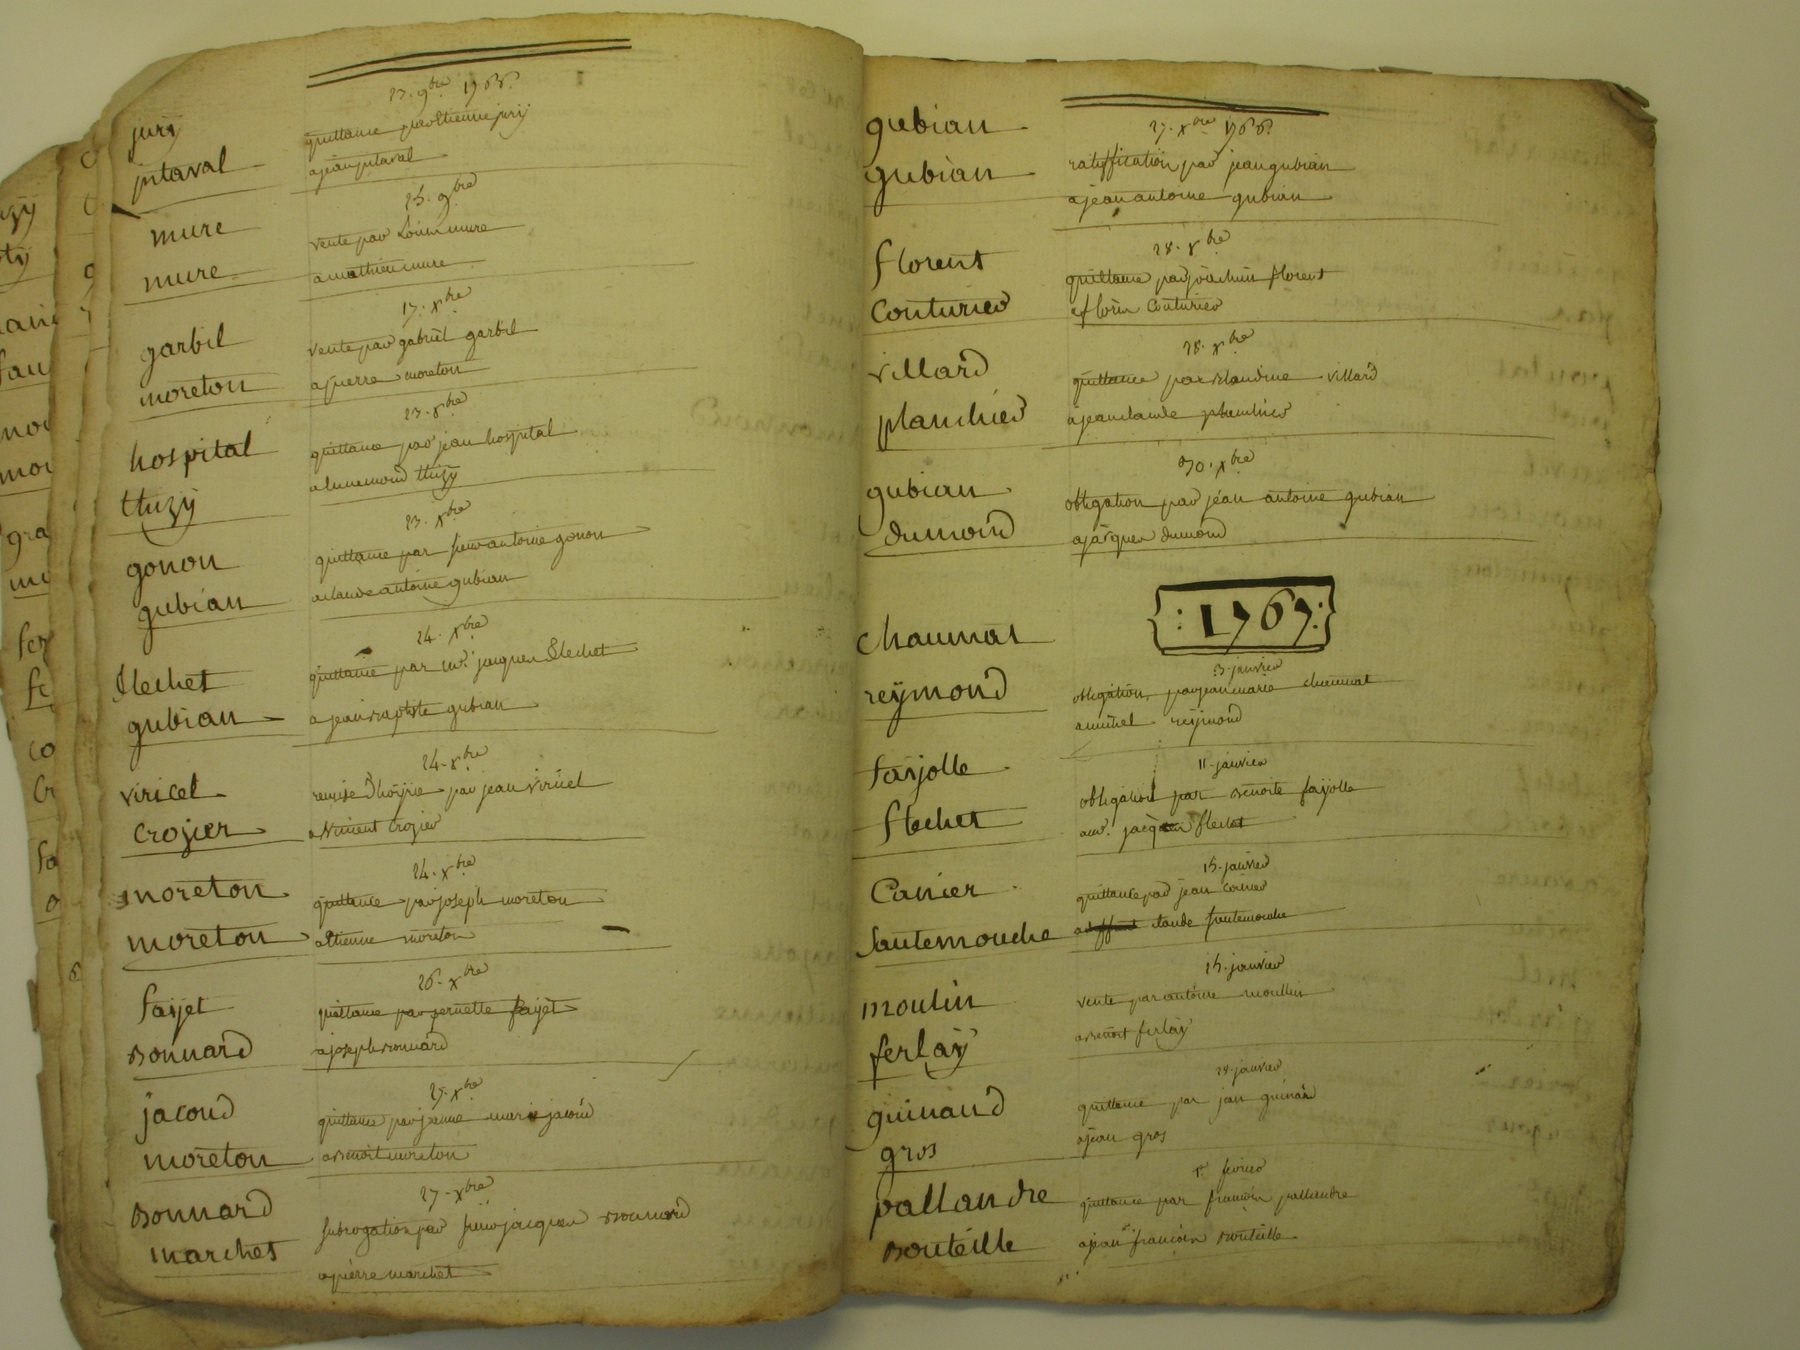 23. 9bre 1766.
jury
quittance par Etienne jury
pitaval
a jean pitaval
25. 9bre
mure
vente par Louis mure
mure
a mathieu mure
17. xbre
garbil
vente par gabriel garbil
moreton
a pierre moreton
23. xbre
hospital
quittance par jean hospital
thizy
thizy
23. xbre
gonon
quittance par sieur antoine gonon
gubian
a claude antoine gubian
24. xbre
flechet
quittance par mr. jacques flechet
gubian
a jean baptiste gubian
24. xbre
viricel
remise par jean viricel
Crozier
a Vincent Crozier
24. xbre
moreton
quittance par joseph moreton
moreton
a Etienne moreton
26. xbre
fayet
quittance par pernette fayet
Bonnard
a joseph Bonnard
27. xbre
jacoud
quittance par jeanne marie jacoud
moreton
a Benoit moreton
27. xbre
Bonnard
subrogation par sieur jacques Bonnard
marchet
a pierre marchet
gubian
27. xbre 1766.
gubian
ratiffication par jean gubian
a jean antoine gubian
28. xbre
florent
quittance par joachim florent
Couturier
Couturier
28. xbre
villard
quittance par Blandine villard
planchier
a jean claude planchier
30. xbre
gubian
obligation par jean antoine gubian
dumond
a jacques dumond
: 1767 :
chaumat
3. janvier
reymond
obligation par jean marie chaumat
a michel reymond
fayolle
11. janvier
obligation par Benoite fayolle
flechet
a mr. jacques flechet
15. janvier
Canier
quittance par jean canier
Sautemouche
a claude sautemouche
25. janvier
moulin
vente par antoine moullin
ferlay
a Benoit ferlay
28. janvier
guinand
quittance par jean guinand
gros
a jean gros
1r fevrier
pallandre
quittance par francois pallandre
Bouteille
a jean francois Bouteille